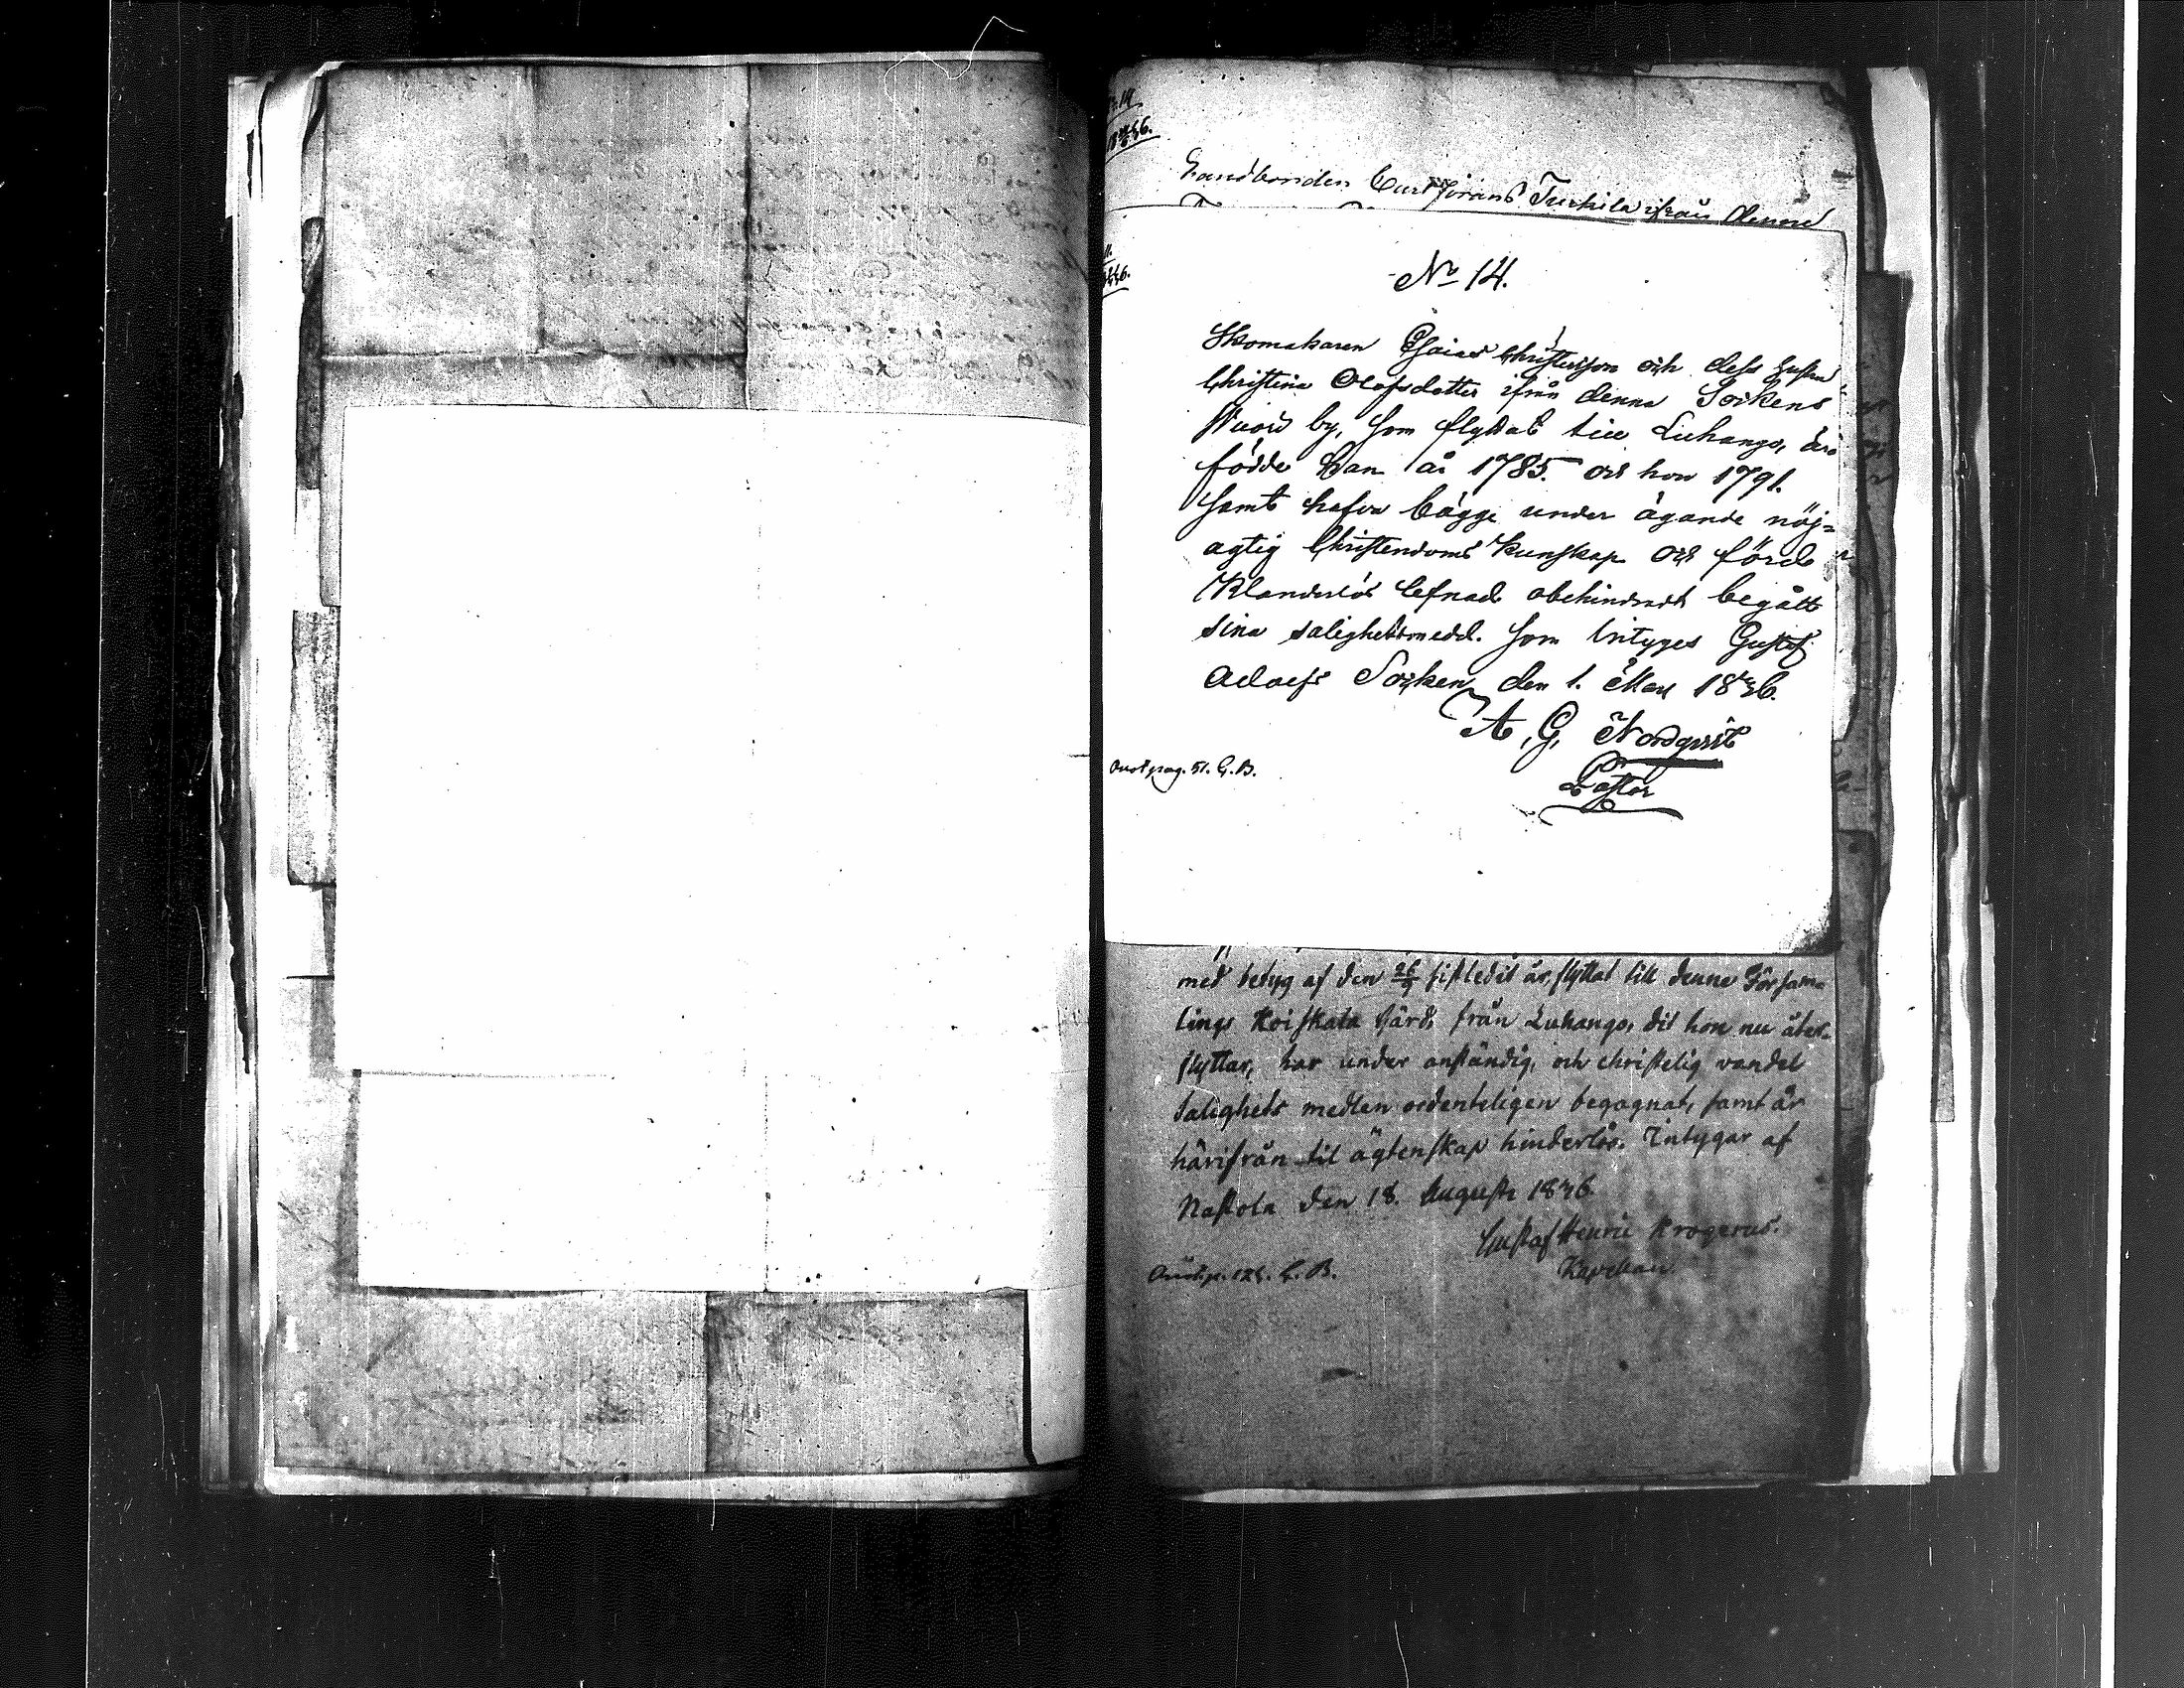 Landbonden Curt Jörans Turkila ifrån denne
No 14.
Skomakaren Esaias Christersson och dess hustru
Christina Olofsdotter ifrån denna Sockens
by, som flyttat till Luhango, äro
födde han år 1785. och hon 1791.
samt hafva bägge under ägande nöj=
agtig Christendoms Kunskap och förd
Klanderlös lefnad obehindradt begått
sina salighetsmedel. som intyges Gustaf
Adolfs Socken den 1. Maji 1836.
A. G. Nordqvist
Pastor
pag. 51. C. B.
med betyg af den 26/9 sistledit år, flyttat till denne Församl
lings Koiskala Gård, från Luhango, dit hon nu åter=
flyttar, har under anständig, och christelig vandel
salighets medlen ordenteligen begagnat, samt är
härifrån til ägtenskap hinderlös. Intygar af
Nastola den 18. Augusti 1836.
Gustaf Henric Krogerus.
Kapellan